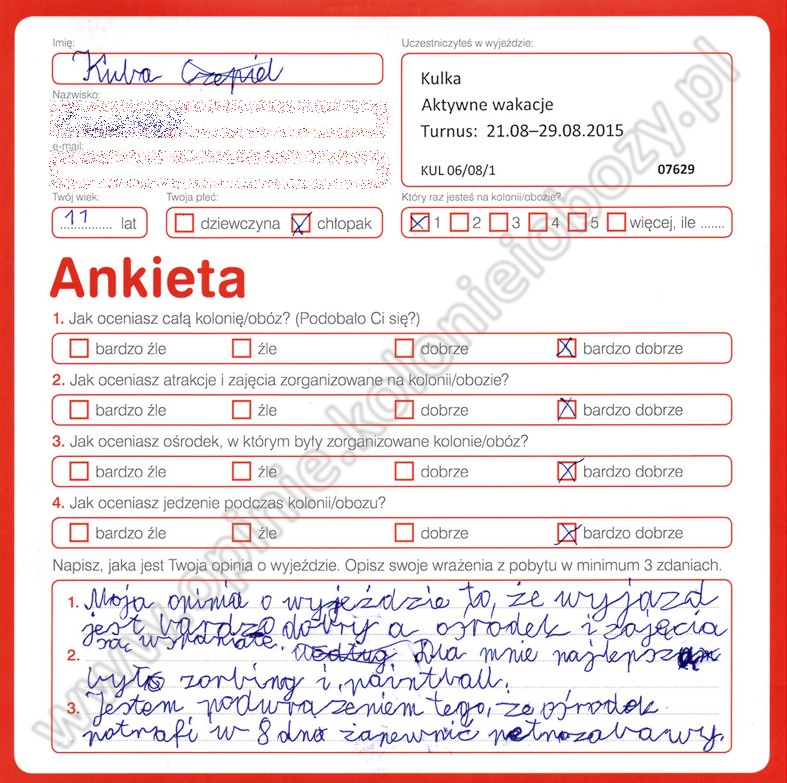 Imię:
Uczestniczyłeś w wyjeździe:
Kuba Czepiel
Kulka
Nazwisko:
Aktywne wakacje
Turnus: 21.08–29.08.2015
e-mail:
KUL 06/08/1 07629
Twój wiek: Twoja płeć: Który raz jesteś na kolonii/obozie?
11 lat dziewczyna chłopak 1 2 3 4 5 więcej, ile .......
Ankieta
1. Jak oceniasz całą kolonię/obóz? (Podobało Ci się?)
bardzo źle źle dobrze bardzo dobrze
2. Jak oceniasz atrakcje i zajęcia zorganizowane na kolonii/obozie?
bardzo źle źle dobrze bardzo dobrze
3. Jak oceniasz ośrodek, w którym były zorganizowane kolonie/obóz?
bardzo źle źle dobrze bardzo dobrze
4. Jak oceniasz jedzenie podczas kolonii/obozu?
bardzo źle źle dobrze bardzo dobrze
Napisz, jaka jest Twoja opinia o wyjeździe. Opisz swoje wrażenia z pobytu w minimum 3 zdaniach.
1. Moja opinia o wyjeździe to, że wyjazd
jest bardzo dobry a ośrodek i zajęcia
są wspaniałe.
2. Według Dla mnie najlepsze
było zorbing i paintball.
3. Jestem podwrażeniem tego, że ośrodek
potrafi w 8 dno zapewnić pełnozabawy.
www.opinie.kolonieiobozy.pl